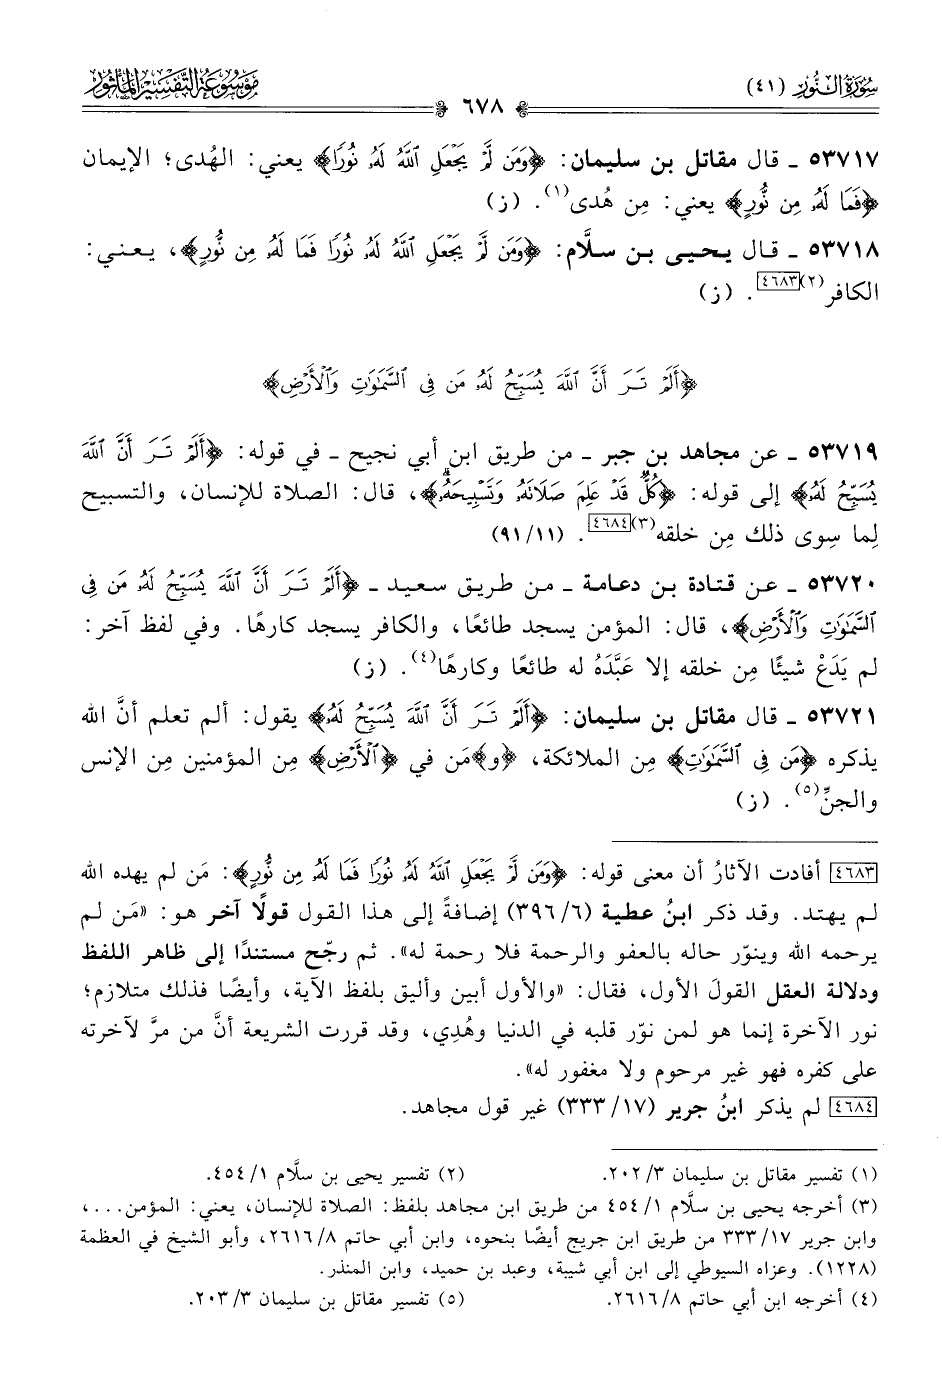 سُورَةُ النُّورِ (٤١)
٦٧٨
مَوْسُوعَة التَّفْسِيرِ المَأْثُورِ
٥٣٧١٧ ـ قال مقاتل بن سليمان: ﴿وَمَن لَّمْ يَجْعَلِ ٱللَّهُ لَهُۥ نُورًا﴾ يعني: الهُدى؛ الإيمان
﴿فَمَا لَهُۥ مِن نُّورٍ﴾ يعني: مِن هُدى(١). (ز)
٥٣٧١٨ ـ قال يحيى بن سلَّام: ﴿وَمَن لَّمْ يَجْعَلِ ٱللَّهُ لَهُۥ نُورًا فَمَا لَهُۥ مِن نُّورٍ﴾، يعني:
الكافر(٢)[٤٦٨٣]. (ز)
﴿أَلَمْ تَرَ أَنَّ ٱللَّهَ يُسَبِّحُ لَهُۥ مَن فِى ٱلسَّمَٰوَٰتِ وَٱلْأَرْضِ﴾
٥٣٧١٩ ـ عن مجاهد بن جبر ـ من طريق ابن أبي نجيح ـ في قوله: ﴿أَلَمْ تَرَ أَنَّ ٱللَّهَ
يُسَبِّحُ لَهُۥ﴾ إلى قوله: ﴿كُلٌّ قَدْ عَلِمَ صَلَاتَهُۥ وَتَسْبِيحَهُۥ﴾، قال: الصلاة للإنسان، والتسبيح
لِما سِوى ذلك مِن خلقه(٣)[٤٦٨٤]. (٩١/١١)
٥٣٧٢٠ ـ عن قتادة بن دعامة ـ من طريق سعيد ـ ﴿أَلَمْ تَرَ أَنَّ ٱللَّهَ يُسَبِّحُ لَهُۥ مَن فِى
ٱلسَّمَٰوَٰتِ وَٱلْأَرْضِ﴾، قال: المؤمن يسجد طائعًا، والكافر يسجد كارهًا. وفي لفظ آخر:
لم يَدَعْ شيئًا مِن خلقه إلا عَبَّدَهُ له طائعًا وكارهًا(٤). (ز)
٥٣٧٢١ ـ قال مقاتل بن سليمان: ﴿أَلَمْ تَرَ أَنَّ ٱللَّهَ يُسَبِّحُ لَهُۥ﴾ يقول: ألم تعلم أنَّ الله
يذكره ﴿مَن فِى ٱلسَّمَٰوَٰتِ﴾ مِن الملائكة، ﴿و﴾مَن في ﴿ٱلْأَرْضِ﴾ مِن المؤمنين مِن الإنس
والجنِّ(٥). (ز)
[٤٦٨٣] أفادت الآثارُ أن معنى قوله: ﴿وَمَن لَّمْ يَجْعَلِ ٱللَّهُ لَهُۥ نُورًا فَمَا لَهُۥ مِن نُّورٍ﴾: مَن لم يهده الله
لم يهتد. وقد ذكر ابنُ عطية (٣٩٦/٦) إضافةً إلى هذا القول قولًا آخر هو: «مَن لم
يرحمه الله وينوّر حاله بالعفو والرحمة فلا رحمة له». ثم رجّح مستندًا إلى ظاهر اللفظ
ودلالة العقل القولَ الأول، فقال: «والأول أبين وأليق بلفظ الآية، وأيضًا فذلك متلازم؛
نور الآخرة إنما هو لمن نوّر قلبه في الدنيا وهُدِي، وقد قررت الشريعة أنَّ من مرَّ لآخرته
على كفره فهو غير مرحوم ولا مغفور له».
[٤٦٨٤] لم يذكر ابنُ جرير (٣٣٣/١٧) غير قول مجاهد.
(١) تفسير مقاتل بن سليمان ٢٠٢/٣. (٢) تفسير يحيى بن سلَّام ٤٥٤/١.
(٣) أخرجه يحيى بن سلَّام ٤٥٤/١ من طريق ابن مجاهد بلفظ: الصلاة للإنسان، يعني: المؤمن...،
وابن جرير ٣٣٣/١٧ من طريق ابن جريج أيضًا بنحوه، وابن أبي حاتم ٢٦١٦/٨، وأبو الشيخ في العظمة
(١٢٢٨). وعزاه السيوطي إلى ابن أبي شيبة، وعبد بن حميد، وابن المنذر.
(٤) أخرجه ابن أبي حاتم ٢٦١٦/٨. (٥) تفسير مقاتل بن سليمان ٢٠٣/٣.